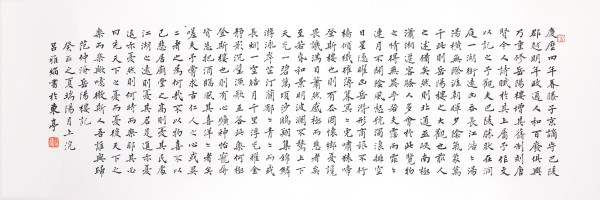 慶曆四年春滕子京謫守巴陵
郡越明年政通人和百廢俱興
乃重修岳陽樓增其舊制刻唐
賢今人詩賦於其上屬予作文
以記之予觀夫巴陵勝狀在洞
庭一湖銜遠山吞長江浩浩湯
湯橫無際涯朝暉夕陰氣象萬
千此則岳陽樓之大觀也前人
之述備矣然則北通巫峽南極
瀟湘遷客騷人多會於此覽物
之情得無異乎若夫霪雨霏霏
連月不開陰風怒號濁浪排空
日星隱曜山岳潛形商旅不行
檣傾楫摧薄暮冥冥虎嘯猿啼
登斯樓也則有去國懷鄉憂讒
畏譏滿目蕭然感極而悲者矣
至若春和景明波瀾不驚上下
天光一碧萬頃沙鷗翔集錦鱗
游泳岸芷汀蘭郁郁青青而或
長煙一空皓月千里浮光躍金
靜影沉璧漁歌互答此樂何極
登斯樓也則有心曠神怡寵辱
偕忘把酒臨風其喜洋洋者矣
嗟夫予嘗求古仁人之心或異
二者之為何哉不以物喜不以
己悲居廟堂之高則憂其民處
江湖之遠則憂其君是進亦憂
退亦憂然則何時而樂耶其必
曰先天下之憂而憂後天下之
樂而樂歟噫微斯人吾誰與歸
范仲淹岳陽樓記
癸巳之夏端陽月上浣
呂雅娟書於東亭